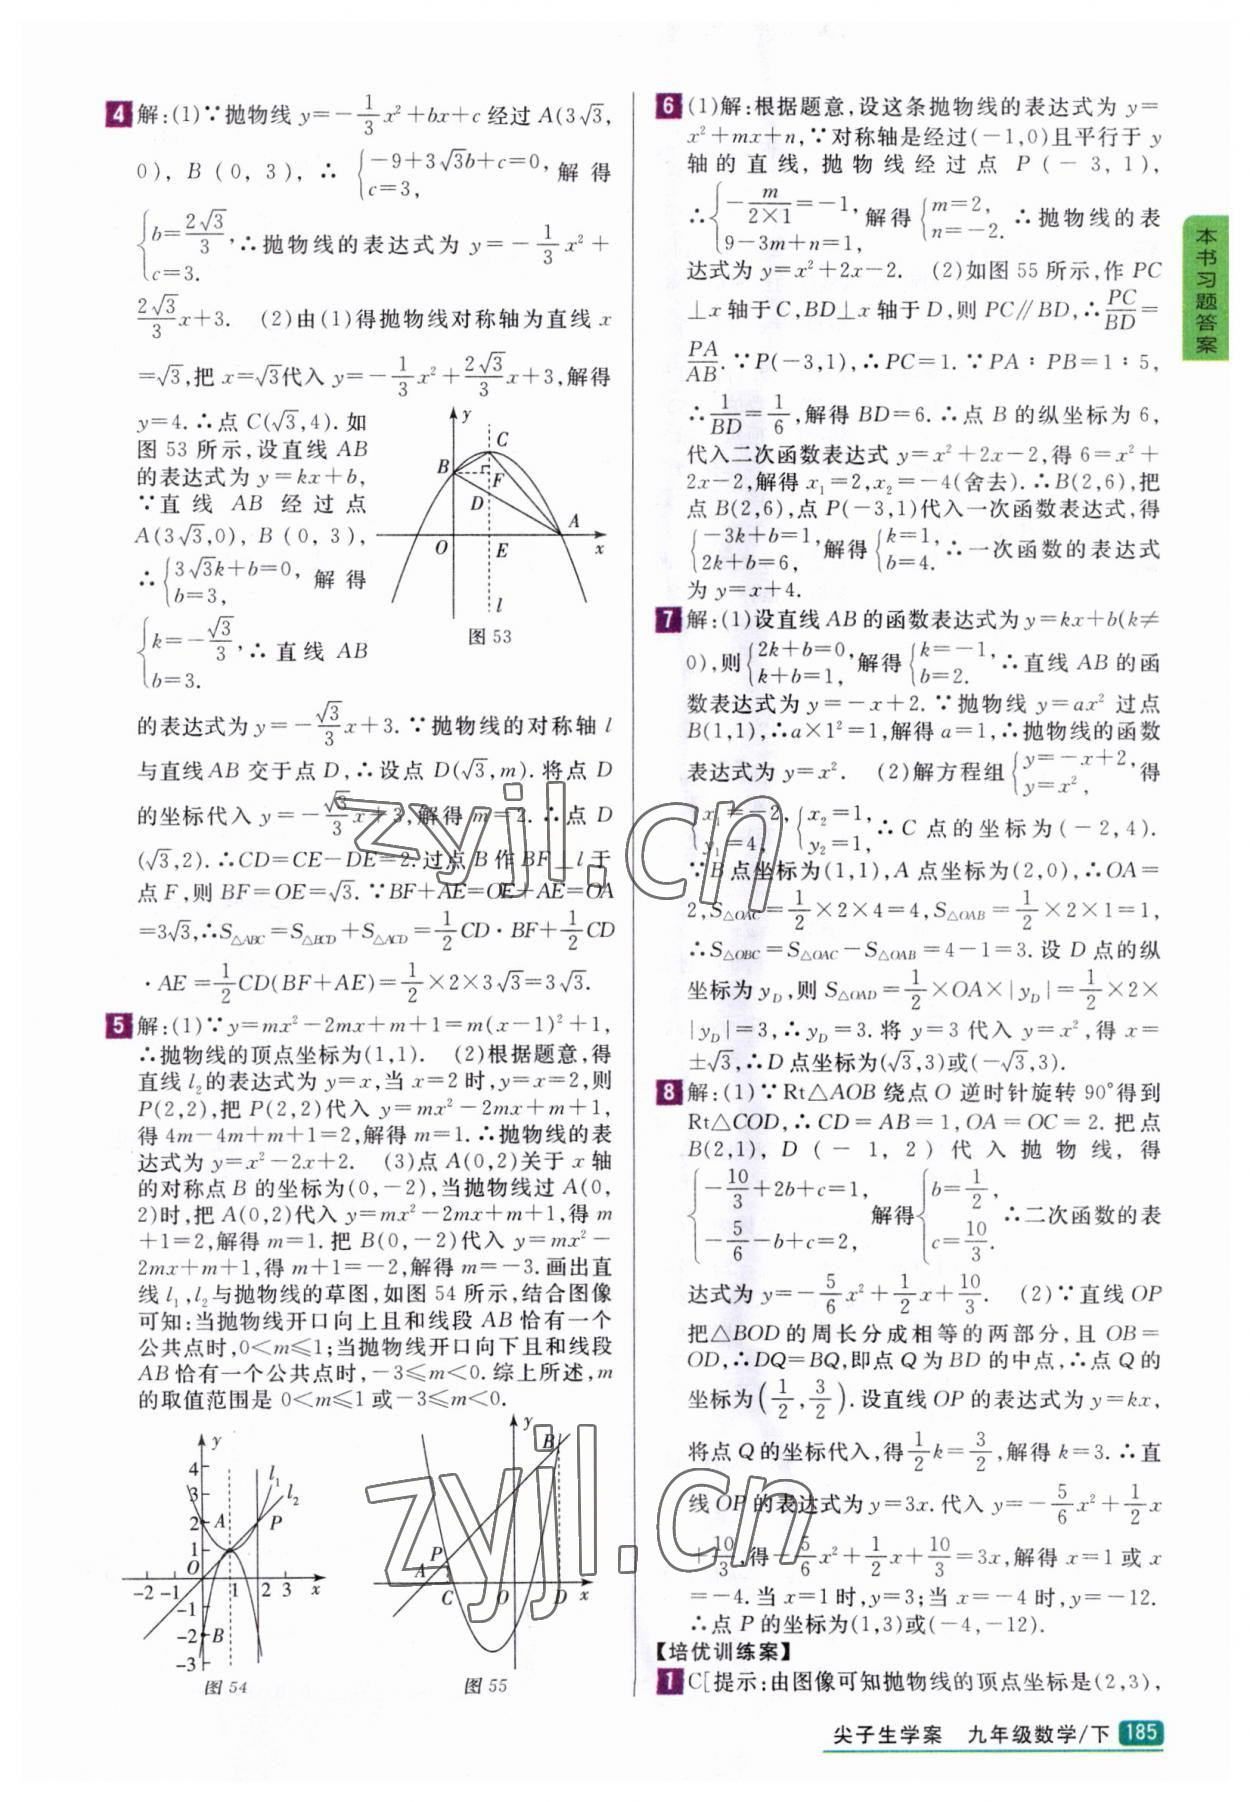 4 解:(1)∵抛物线 y=-1/3x²+bx+c 经过 A(3√3,
0), B(0, 3), ∴ {-9+3√3b+c=0, c=3, 解得
{b=2√3/3, c=3. ∴抛物线的表达式为 y=-1/3x²+
2√3/3x+3. (2)由(1)得抛物线对称轴为直线 x
=√3,把 x=√3代入 y=-1/3x²+2√3/3x+3,解得
y=4.∴点 C(√3,4). 如
图 53 所示,设直线 AB
的表达式为 y=kx+b,
∵直线 AB 经过点
A(3√3,0), B(0, 3),
∴{3√3k+b=0, b=3, 解得
{k=-√3/3, b=3. ∴直线 AB
y
C
B
F
D
A
O
E
x
l
图 53
的表达式为 y=-√3/3x+3.∵抛物线的对称轴 l
与直线AB 交于点 D,∴设点 D(√3,m). 将点 D
的坐标代入 y=-√3/3x+3,解得 m=2.∴点 D
(√3,2).∴CD=CE-DE=2.过点 B 作 BF⊥l 于
点 F,则 BF=OE=√3.∵BF+AE=OE+AE=OA
=3√3,∴S△ABC=S△BCD+S△ACD=1/2CD·BF+1/2CD
·AE=1/2CD(BF+AE)=1/2×2×3√3=3√3.
5 解:(1)∵y=mx²-2mx+m+1=m(x-1)²+1,
∴抛物线的顶点坐标为(1,1). (2)根据题意,得
直线 l₂的表达式为 y=x,当 x=2时,y=x=2,则
P(2,2),把 P(2,2)代入 y=mx²-2mx+m+1,
得 4m-4m+m+1=2,解得 m=1.∴抛物线的表
达式为 y=x²-2x+2. (3)点 A(0,2)关于 x 轴
的对称点 B 的坐标为(0,-2),当抛物线过 A(0,
2)时,把 A(0,2)代入 y=mx²-2mx+m+1,得 m
+1=2,解得 m=1. 把 B(0,-2)代入 y=mx²-
2mx+m+1,得 m+1=-2,解得 m=-3. 画出直
线 l₁,l₂与抛物线的草图,如图 54 所示,结合图像
可知:当抛物线开口向上且和线段 AB 恰有一个
公共点时,0<m≤1;当抛物线开口向下且和线段
AB 恰有一个公共点时,-3≤m<0. 综上所述,m
的取值范围是 0<m≤1 或-3≤m<0.
y
4
3
2
1
A
l₁
l₂
P
O
-2 -1 1 2 3 x
-1
-2 B
-3
图 54
y
B
P
A
C
O
D
x
图 55
6 (1)解:根据题意,设这条抛物线的表达式为 y=
x²+mx+n,∵对称轴是经过(-1,0)且平行于 y
轴的直线, 抛物线经过点 P(-3, 1),
∴{-m/2×1=-1, 9-3m+n=1, 解得{m=2, n=-2. ∴抛物线的表
达式为 y=x²+2x-2. (2)如图 55 所示,作 PC
⊥x 轴于 C,BD⊥x 轴于 D,则 PC∥BD,∴PC/BD=
PA/AB.∵P(-3,1),∴PC=1.∵PA∶PB=1∶5,
∴1/BD=1/6,解得 BD=6.∴点 B 的纵坐标为 6,
代入二次函数表达式 y=x²+2x-2,得 6=x²+
2x-2,解得 x₁=2,x₂=-4(舍去).∴B(2,6),把
点 B(2,6),点 P(-3,1)代入一次函数表达式,得
{-3k+b=1, 2k+b=6, 解得{k=1, b=4. ∴一次函数的表达式
为 y=x+4.
7 解:(1)设直线 AB 的函数表达式为 y=kx+b(k≠
0),则{2k+b=0, k+b=1, 解得{k=-1, b=2. ∴直线 AB 的函
数表达式为 y=-x+2.∵抛物线 y=ax² 过点
B(1,1),∴a×1²=1,解得 a=1,∴抛物线的函数
表达式为 y=x². (2)解方程组{y=-x+2, y=x², 得
{x₁=-2, y₁=4, {x₂=1, y₂=1, ∴C 点的坐标为(-2,4).
∵B点坐标为(1,1),A 点坐标为(2,0),∴OA=
2,S△OAC=1/2×2×4=4,S△OAB=1/2×2×1=1,
∴S△OBC=S△OAC-S△OAB=4-1=3. 设 D 点的纵
坐标为 y_D,则 S△OAD=1/2×OA×|y_D|=1/2×2×
|y_D|=3,∴y_D=3. 将 y=3 代入 y=x²,得 x=
±√3,∴D 点坐标为(√3,3)或(-√3,3).
8 解:(1)∵Rt△AOB 绕点 O 逆时针旋转 90°得到
Rt△COD,∴CD=AB=1,OA=OC=2. 把点
B(2,1), D(-1, 2)代入抛物线, 得
{-10/3+2b+c=1, -5/6-b+c=2, 解得{b=1/2, c=10/3. ∴二次函数的表
达式为 y=-5/6x²+1/2x+10/3. (2)∵直线 OP
把△BOD 的周长分成相等的两部分, 且 OB=
OD,∴DQ=BQ,即点 Q 为 BD 的中点,∴点 Q 的
坐标为(1/2,3/2). 设直线 OP 的表达式为 y=kx,
将点 Q 的坐标代入,得1/2k=3/2,解得 k=3.∴直
线 OP 的表达式为 y=3x. 代入 y=-5/6x²+1/2x
+10/3,得-5/6x²+1/2x+10/3=3x,解得 x=1 或 x
=-4. 当 x=1 时,y=3;当 x=-4 时,y=-12.
∴点 P 的坐标为(1,3)或(-4,-12).
【培优训练案】
1 C[提示:由图像可知抛物线的顶点坐标是(2,3),
本书习题答案
尖子生学案 九年级数学/下 185
zyjl.cn
zyjl.cn